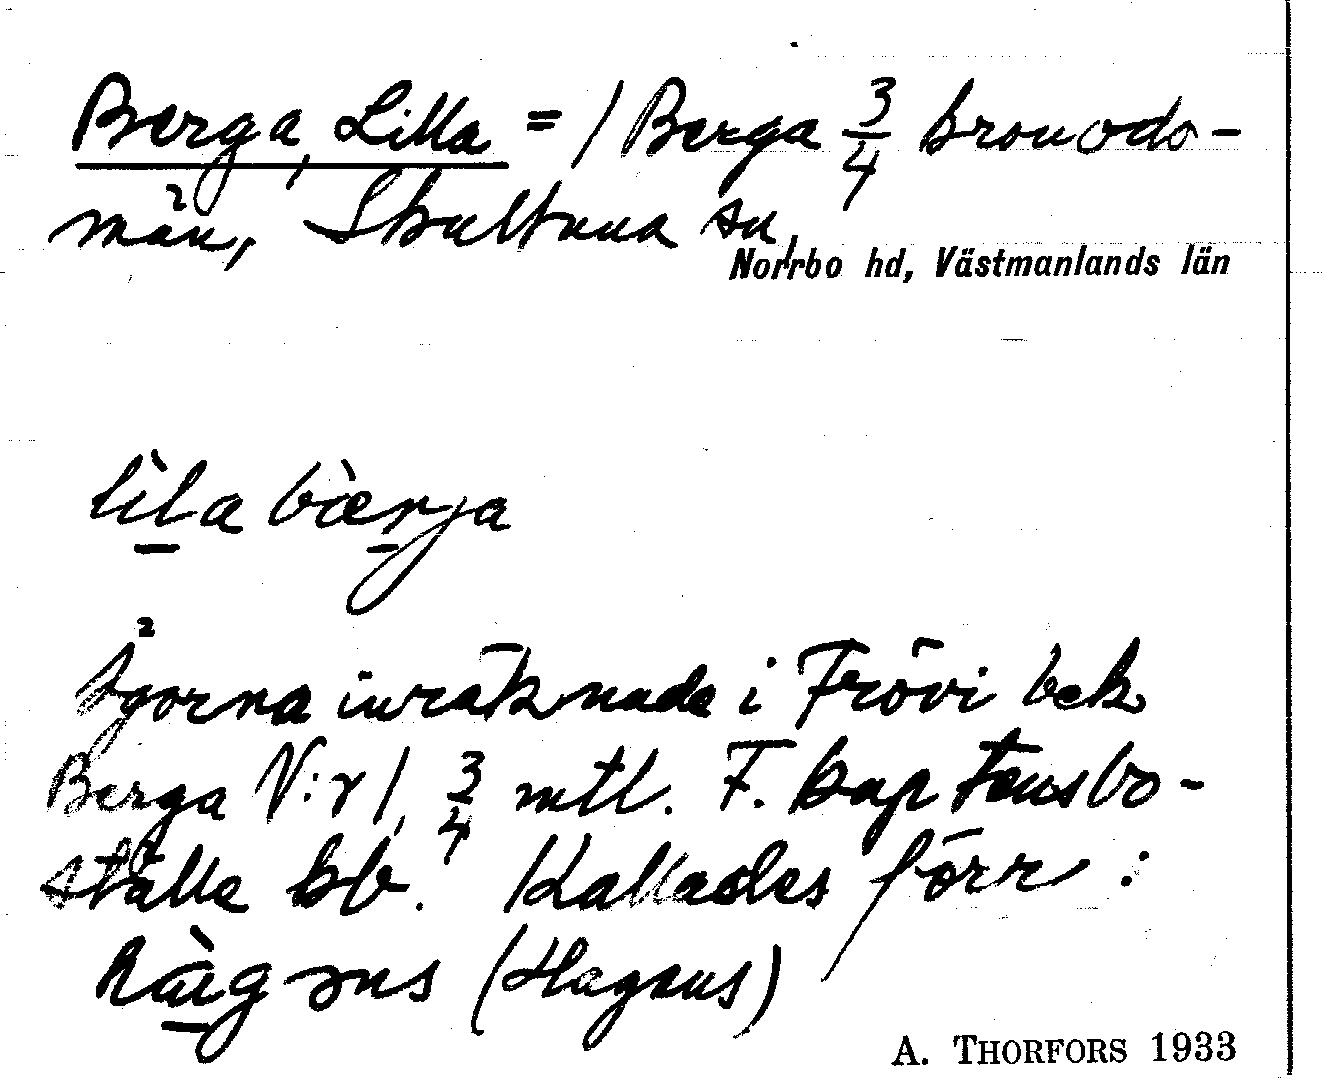 Berga, Lilla = / Berga 3/4 kronodo-
män, Skultuna sn,
Norrbo hd, Västmanlands län
lìla bàrja
Ägorna inräknade i Frövi bek
Berga N:r 1, 3/4 mtl. F. kaptensbo-
ställe bb. Kallades förr :
hàgɔns (Hagens)
A. THORFORS 1933